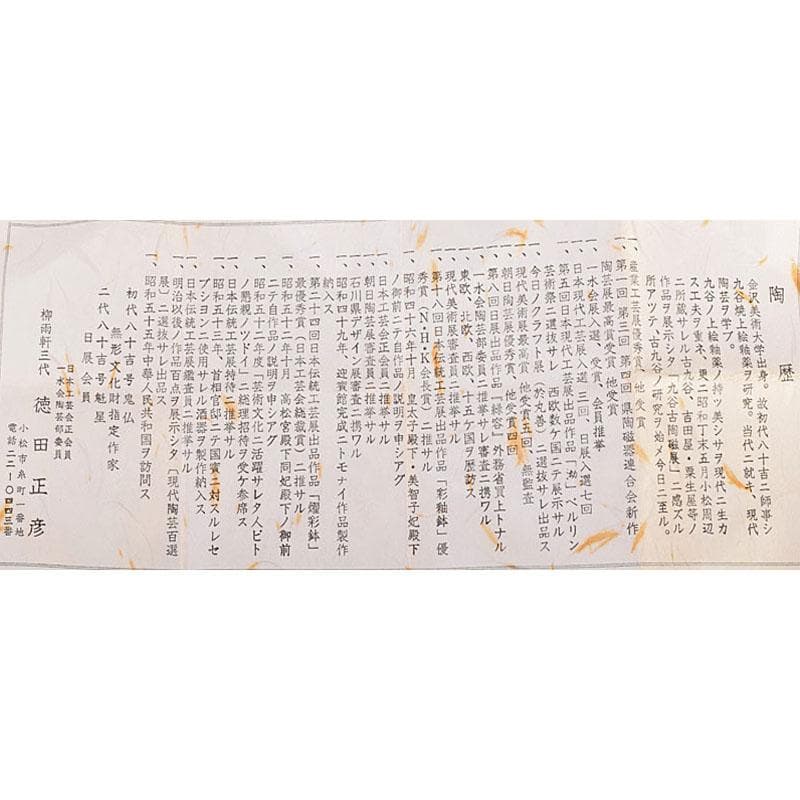 陶歴
金沢美術大学出身。故初代八十吉ニ師事シ
九谷焼上絵釉薬ヲ研究。当代ニ就キ、現代
陶芸ヲ学ブ。
九谷ノ上絵釉薬ノ持ツ美シサヲ現代ニ生カ
ス工夫ヲ重ネ、更ニ昭和丁末五月小松周辺
ニ所蔵サレル古九谷、吉田屋・粟生屋等ノ
作品ヲ展示シタ「九谷古陶磁展」ニ感ズル
所アツテ、古九谷ノ研究ヲ始メ今日ニ至ル。
一、産業工芸展優秀賞、他受賞
一、第一回 第三回 第四回 県陶磁器連合会新作
陶芸展最高賞受賞 他受賞
一、一水会展入選、受賞、会員推挙
一、日本現代工芸展入選 三回、日展入選七回
一、第五回日本現代工芸展出品作品「拗」ベルリン
芸術祭ニ選抜サレ 西欧数ケ国ニテ展示サル
一、今日ノクラフト展（於丸善）ニ選抜サレ出品ス
一、現代美術展最高賞 他受賞五回 無監査
一、朝日陶芸展優秀賞、他受賞四回
一、第八回日展出品作品「緑容」外務省買上トナル
一、一水会陶芸部委員ニ推挙サレ審査ニ携ワル
一、東欧、北欧、西欧、十五ケ国ヲ歴訪ス
一、現代美術展審査員ニ推挙サル
一、第十八回日本伝統工芸展出品作品「彩釉鉢」優
秀賞（N・H・K会長賞）ニ推サル
一、昭和四十六年十月 皇太子殿下・美智子妃殿下
ノ御前ニテ自作品ノ説明ヲ申シアグ
一、日本工芸会正会員ニ推挙サル
一、朝日陶芸展審査員ニ推挙サル
一、石川県デザイン展審査ニ携ワル
一、昭和四十九年、迎賓館完成ニトモナイ作品製作
納入ス
一、第二十四回日本伝統工芸展出品作品「燿彩鉢」
最優秀賞（日本工芸会総裁賞）ニ推サル
一、昭和五十二年十月 高松宮殿下同妃殿下ノ御前
ニテ自作品ノ説明ヲ申シアグ
一、昭和五十二年度「芸術文化ニ活躍サレタ人ビト
ノ懇親ノツドイ」ニ総理招待ヲ受ケ参席ス
一、日本伝統工芸展特待ニ推挙サル
一、昭和五十三年、首相官邸ニテ国賓ニ対スルレセ
プシヨンニ使用サレル酒器ヲ製作納入ス
一、日本伝統工芸展鑑査員ニ推挙サル
一、明治以後ノ作品百点ヲ展示シタ〔現代陶芸百選
展〕ニ選抜サレ出品ス
一、昭和五十五年中華人民共和国ヲ訪問ス
初代八十吉号鬼仏
無形文化財指定作家
二代八十吉号魁星
日展会員
柳雨軒三代 徳田正彦
日本工芸会正会員
一水会陶芸部委員
小松市糸町一番地
電話二二-〇四四三番